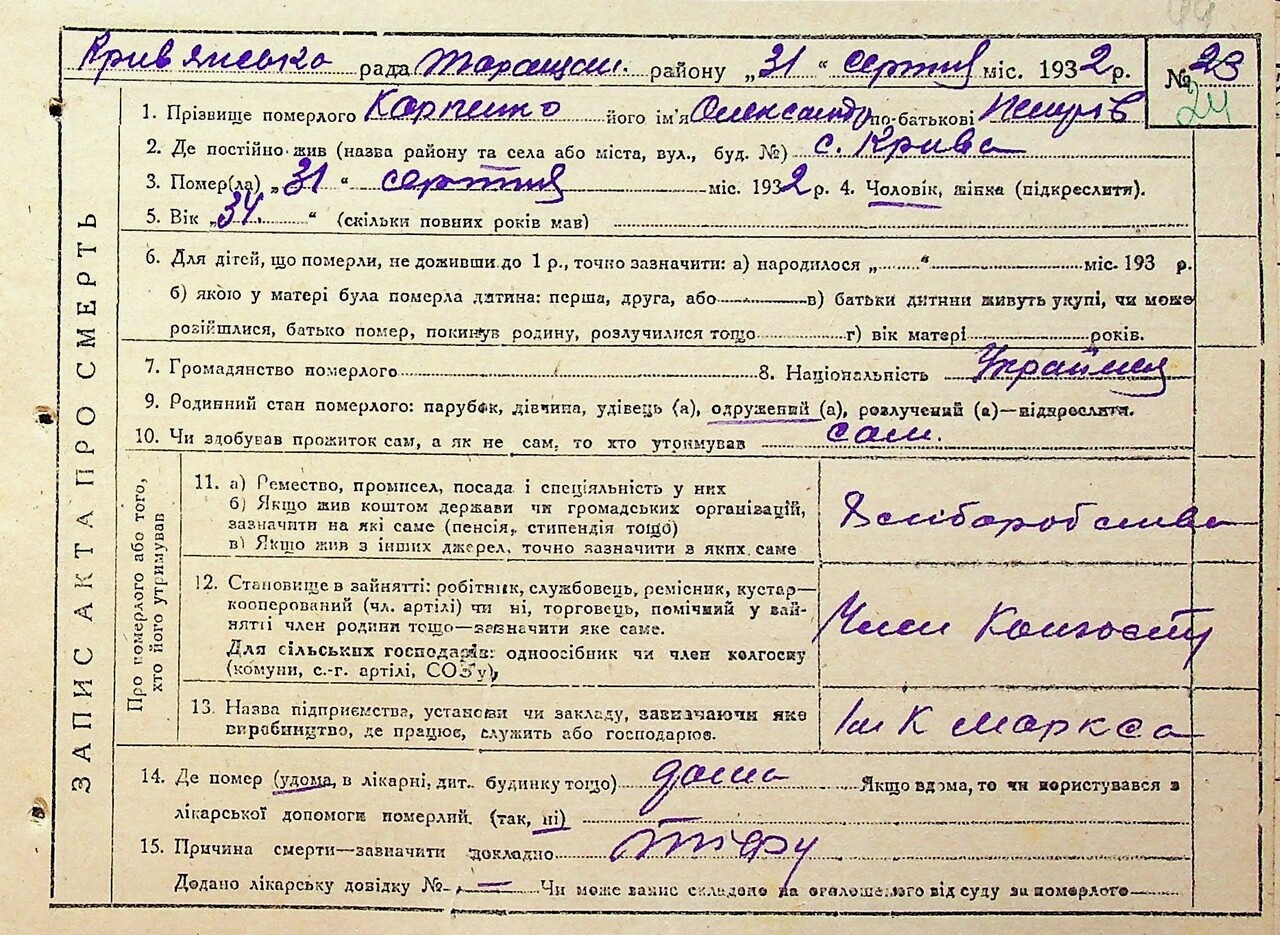 Кривянська рада Таращан. району „31“ серпня міс. 1932 р. № 23
24
ЗАПИС АКТА ПРО СМЕРТЬ
1. Прізвище померлого Карпенко його ім'я Олександр по-батькові
2. Де постійно жив (назва району та села або міста, вул., буд. №) с. Крива
3. Помер(ла) „31“ серпня міс. 1932 р. 4. Чоловік, жінка (підкреслити).
5. Вік „34.“ (скільки повних років мав)
6. Для дітей, що померли, не доживши до 1 р., точно зазначити: а) народилося „ “ міс. 193 р.
б) якою у матері була померла дитина: перша, друга, або в) батьки дитини живуть укупі, чи може
розійшлися, батько помер, покинув родину, розлучилися тощо г) вік матері років.
7. Громадянство померлого 8. Національність Украінец
9. Родинний стан померлого: парубок, дівчина, удівець (а), одружений (а), розлучений (а)—підкреслити.
10. Чи здобував прожиток сам, а як не сам, то хто утримував сам.
Про померлого або того,
хто його утримував
11. а) Ремество, промисел, посада і спеціяльність у них
б) Якщо жив коштом держави чи громадських організацій,
зазначити на які саме (пенсія, стипендія тощо)
в) Якщо жив з інших джерел, точно зазначити з яких саме
12. Становище в зайнятті: робітник, службовець, ремісник, кустар—
кооперований (чл. артілі) чи ні, торговець, помічний у зай-
нятті член родини тощо—зазначити яке саме.
Для сільських господарів: одноосібник чи член колгоспу
(комуни, с.-г. артілі, СОЗ'у),
Член Колгоспу
13. Назва підприємства, установи чи закладу, зазначаючи яке
виробництво, де працює, служить або господарює.
Ім К Маркса
14. Де помер (удома, в лікарні, дит. будинку тощо) дома Якщо вдома, то чи користувався з
лікарської допомоги померлий. (так, ні)
15. Причина смерти—зазначити докладно тіфу
Додано лікарську довідку № — Чи може запис складено на оголошеного від суду за померлого